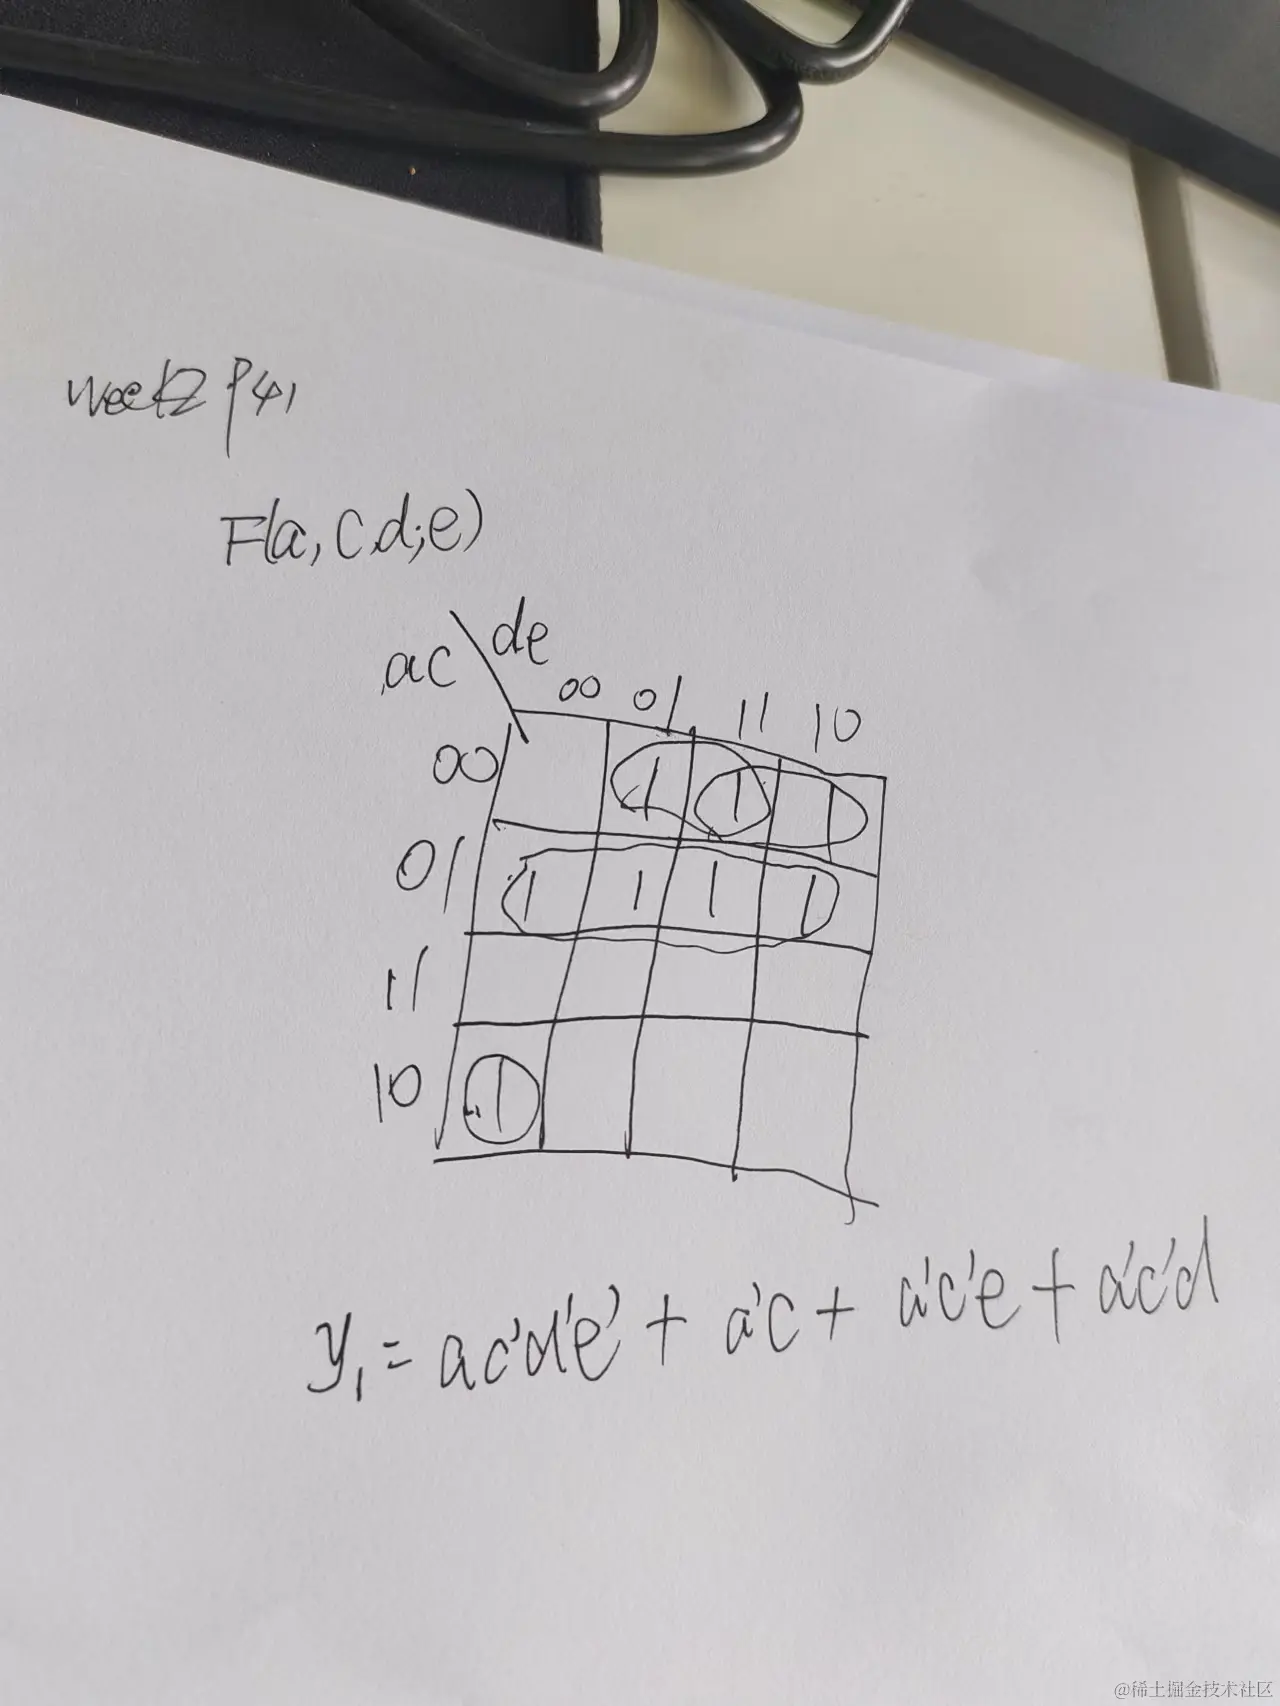 week2 P41
F(a, c,d,e)
ac \ de
00 01 11 10
00 1 1 1
01 1 1 1 1
11
10 1
y₁ = ac'd'e' + a'c + a'c'e + a'c'd
@稀土掘金技术社区